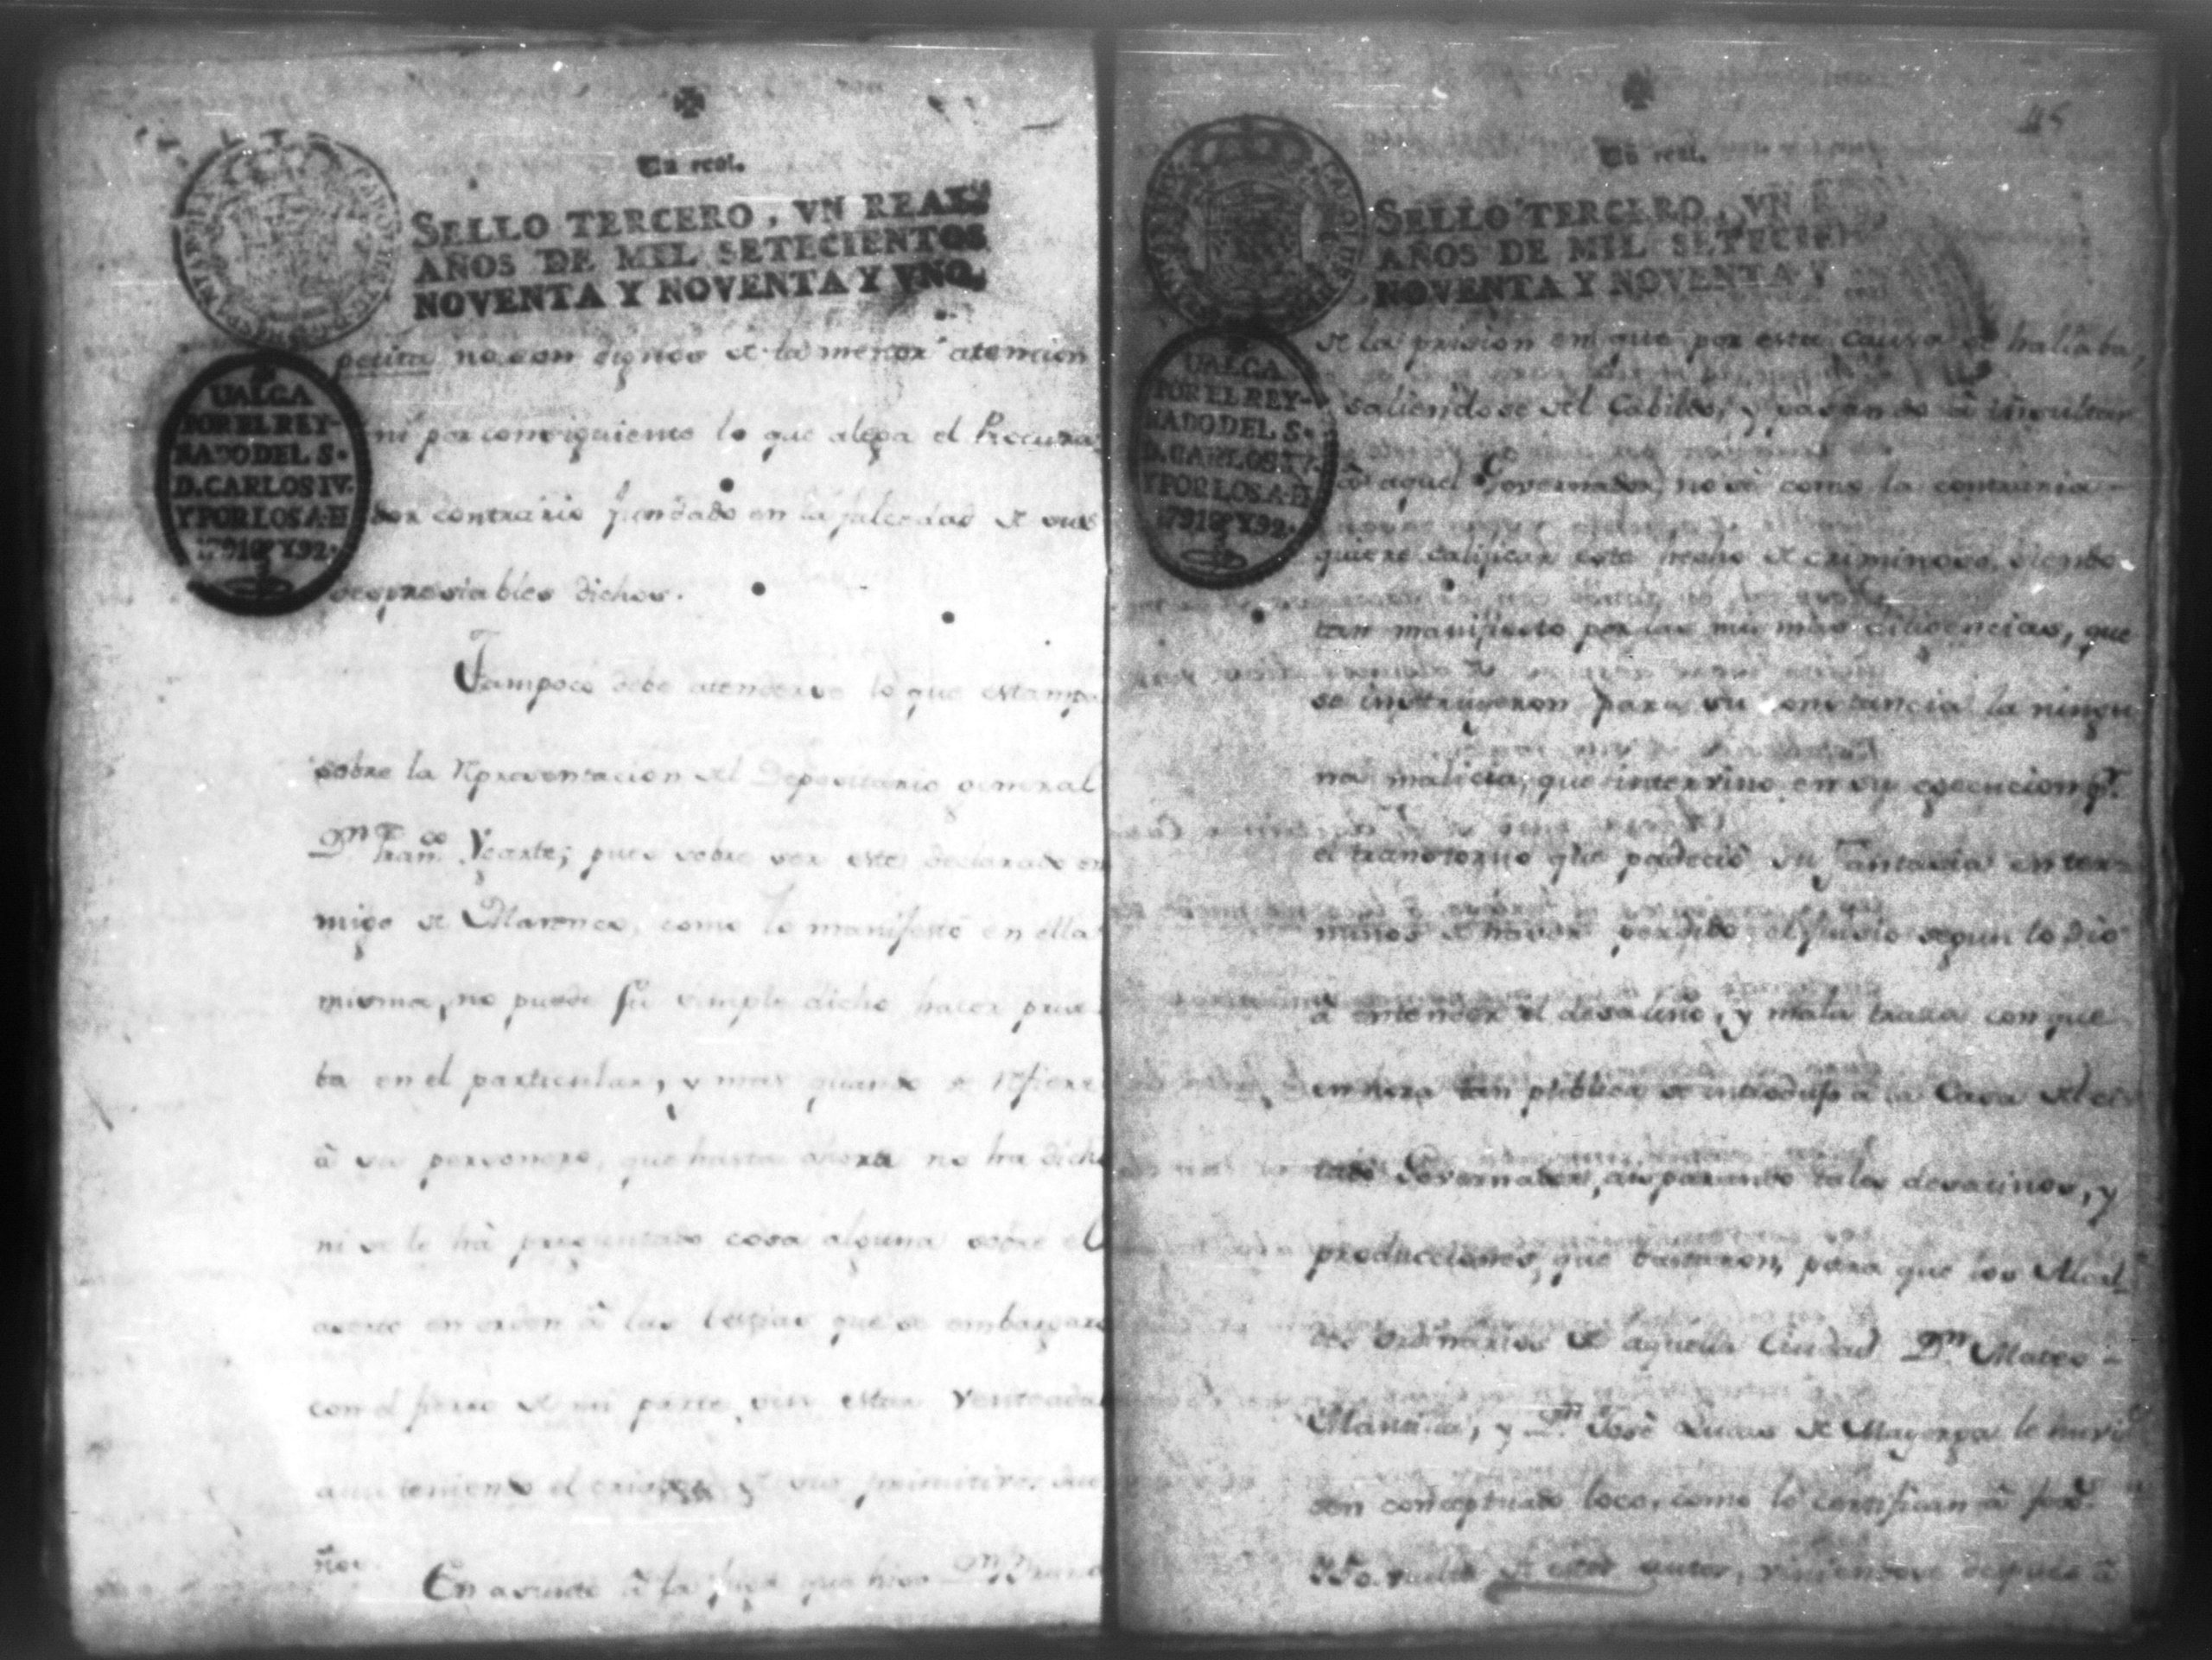 Un real.
SELLO TERCERO, VN REAL
AÑOS DE MIL SETECIENTOS
NOVENTA Y NOVENTA Y VNO.
UALGA
POR EL REY-
NADO DEL S.
D. CARLOS IV.
Y POR LOS A. D
1791 Y 92.
petira no son dignos de la menor atencion
ni por consiguiente lo que alega el Procura
dor contrario fundado en la falcedad de sus
despresiables dichos.
Tampoco debe atenderse lo que estampa
sobre la Rpresentacion del Depositario general
Dn. Franco. Ycarte; pues sobre ser este declarado en
migo de Marenco, como lo manifestó en ella
misma, no puede su simple dicho hacer prue-
ba en el particular, y mas quando se Rfiere
à su personero, que hasta ahora no ha dicho
ni se le há preguntado cosa alguna sobre el
aserto en orden à las bestias que se embargaro
con el fierro de mi parte, sin estar Venteadas
aun teniendo el de sus primitivos due
ños.
En asunto à la fuga que hiso Dn.
45
Un real.
SELLO TERCERO, VN R
AÑOS DE MIL SETECIEN
NOVENTA Y NOVENTA Y
UALGA
POR EL REY-
NADO DEL S.
D. CARLOS IV.
Y POR LOS A. D
1791 Y 92.
de la prision en que por esta causa se hallaba,
saliendose del Cabildo, y pasando à insultar
à aquel Governador, no sè como la contraria
quiere calificar este hecho de criminoso, siendo
tan manifiesto por las mismas diligencias, que
se instruyeron para su constancia la ningu
na malicia, que intervino en su egecucion pr.
el transtorno que padeció su fantasia en ter-
minos de haver perdido el juisio segun lo dió
à entender el desaliño, y mala traza con que
en hora tan publica se introdujo a la Casa del ci-
tado Governador, disparando tales desatinos, y
producciones, que bastaron, para que los Alcal-
des Ordinarios de aquella Ciudad Dn. Mateo
Mansilla, y Dn. José Lucas de Mayorga le huvie
sen conceptuado loco, como lo certifican à foxs.
vuelta de estos autos, viniendose despues à